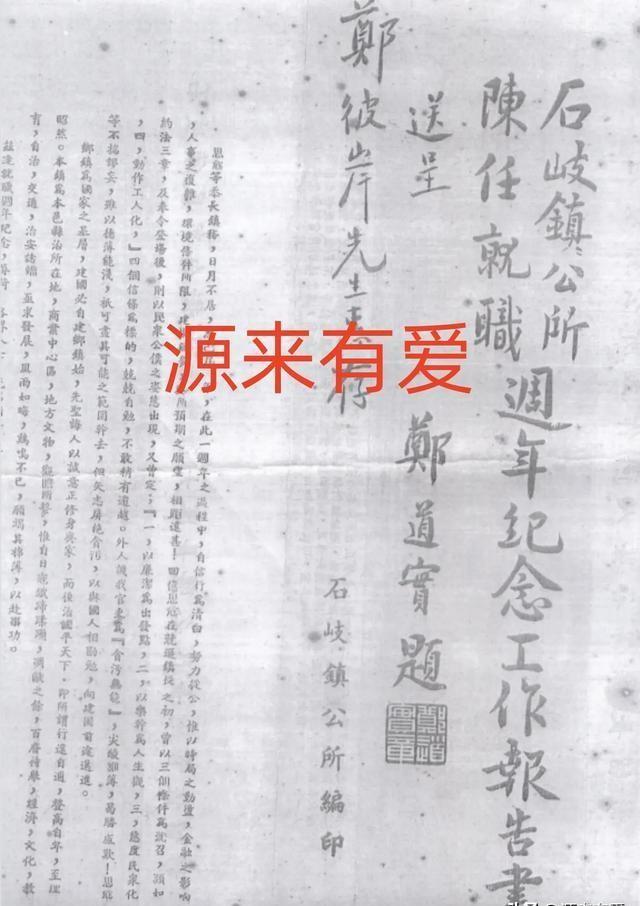 石岐鎮公所
陳任就職週年紀念工作報告書
送呈
鄭彼岸先生惠存
鄭道實題
石岐鎮公所編印
源来有爱
思寇等忝長鎮務，日月不居，
在此一週年之過程中，自信行為清白，努力從公，惟以時局之動盪，金融之影響
，人事之複雜，環境條件所限，
所預期之願望，相距遠甚！回憶思寇在競選鎮長之初，曾以三個條件為號召，
約法三章，及奉令登場後，則以民衆公僕之姿態出現，又曾定；「一，以廉潔為出發點，二，以樂幹為人生觀，三，態度民衆化
，四，動作工人化，」四個信條為標的，兢兢自勉，不敢稍有逾越。外人譏我官吏為『貪汚無能』，
等不揣謬妄，雖以德薄能淺，祇可盡其可能之範圍幹去，但矢志屏絕貪汚，以與國人相勗勉，向建國前途邁進。
鄉鎮為國家之基層，建國必自建鄉鎮始，先聖誨人以誠意正修身齊家，而後治國平天下，即所謂行遠自邇，登高自卑，至理
昭然。本鎮為本邑縣治所在地，商業中心區，地方文物，
百廢待舉，經濟，文化，教
育，自治，交通，治安諸端，亟求發展，風雨如晦，鷄鳴不已，願竭其棉薄，以赴事功。
茲逢就職週年紀念，